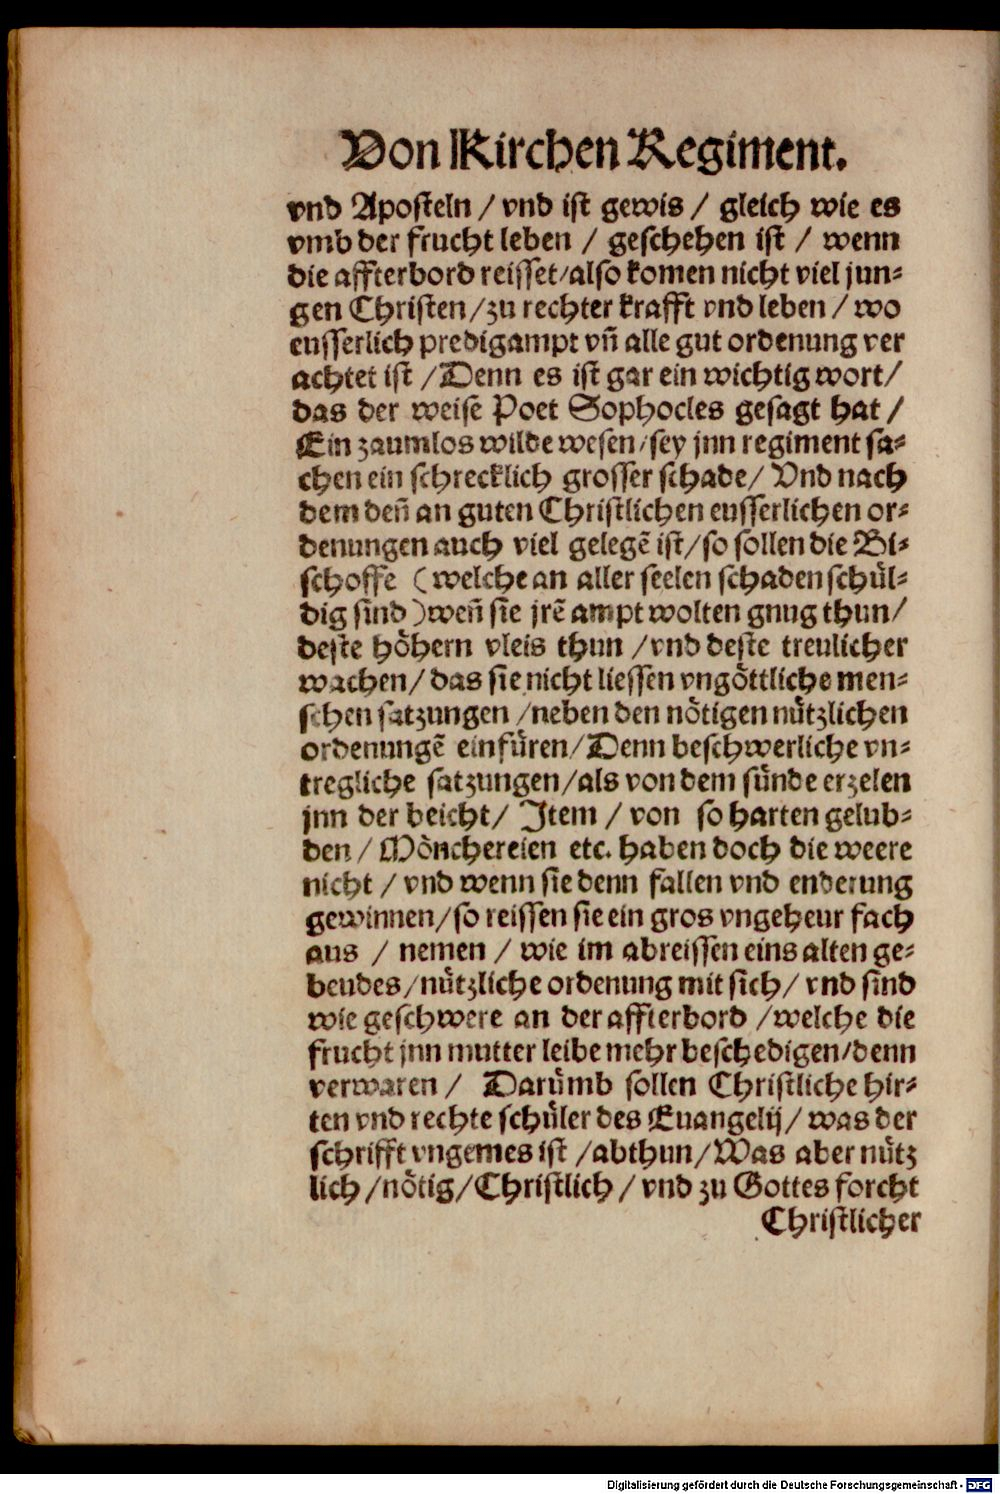 Von Kirchen Regiment.
vnd Aposteln / vnd ist gewis / gleich wie es
vmb der frucht leben / geschehen ist / wenn
die affterbord reisset/also komen nicht viel jun-
gen Christen/zu rechter krafft vnd leben / wo
eusserlich predigampt vñ alle gut ordenung ver
achtet ist /Denn es ist gar ein wichtig wort/
das der weise Poet Sophocles gesagt hat /
Ein zaumlos wilde wesen/sey jnn regiment sa-
chen ein schrecklich grosser schade/ Vnd nach
dem deñ an guten Christlichen eusserlichen or-
denungen auch viel gelegē ist/so sollen die Bi-
schoffe (welche an aller seelen schaden schül-
dig sind)weñ sie jrē ampt wolten gnug thun/
deste höhern vleis thun /vnd deste treulicher
wachen/das sie nicht liessen vngöttliche men-
schen satzungen /neben den nötigen nützlichen
ordenungē einfüren/Denn beschwerliche vn-
tregliche satzungen/als von dem sünde erzelen
jnn der beicht/ Item / von so harten gelub-
den / Mönchereien etc. haben doch die weere
nicht / vnd wenn sie denn fallen vnd enderung
gewinnen/so reissen sie ein gros vngeheur fach
aus / nemen / wie im abreissen eins alten ge-
beudes/nützliche ordenung mit sich/ vnd sind
wie geschwere an der affterbord /welche die
frucht jnn mutter leibe mehr beschedigen/denn
verwaren / Darümb sollen Christliche hir-
ten vnd rechte schüler des Euangelij/ was der
schrifft vngemes ist /abthun/Was aber nütz
lich/nötig/Christlich / vnd zu Gottes forcht
Christlicher
Digitalisierung gefördert durch die Deutsche Forschungsgemeinschaft - DFG